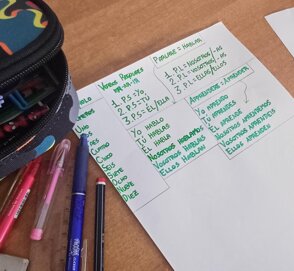 Verbos Regulares
1. P.S = Yo
2. P.S = Tú
3. P.S = Él/Ella
Yo Hablo
Tú Hablas
Él Habla
Nosotros Hablamos
Vosotros Habláis
Ellos Hablan
Primulare = Hablar
1. P.L = Nosotros/-as
2. P.L = Vosotros/-as
3. P.L = Ellos/Ellas
Aprendere = Aprender
Yo Aprendo
Tú Aprendes
Él Aprende
Nosotros Aprendemos
Vosotros Aprendéis
Ellos Aprenden
Uno
Dos
Tres
Cuatro
Cinco
Seis
Siete
Ocho
Nueve
Diez